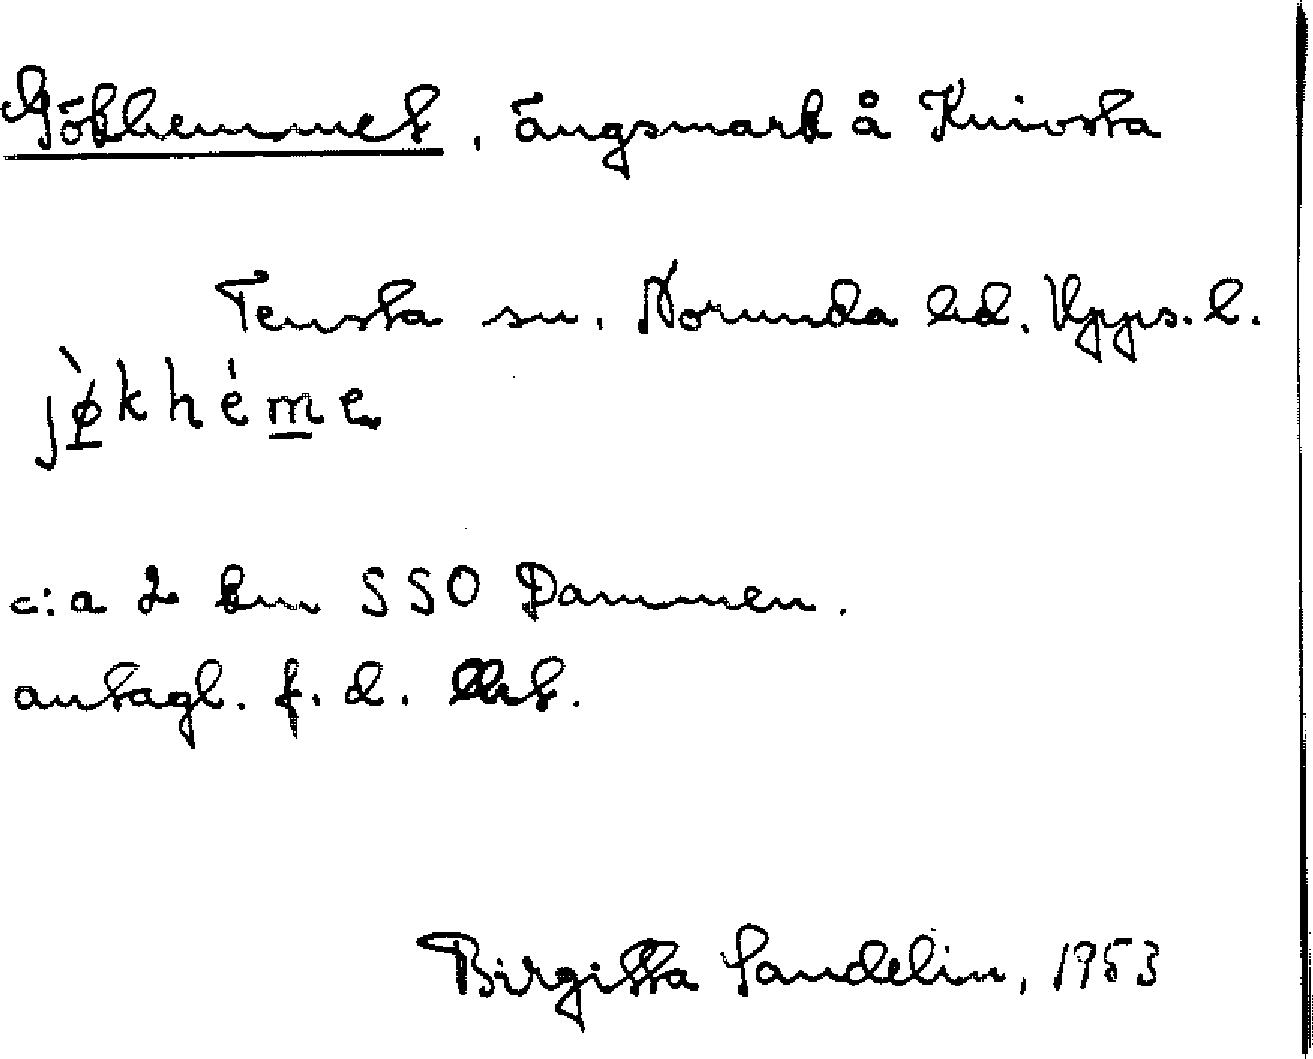 Gökhemmet, ängsmark å Knivsta
Tensta sn. Norunda hd. Upps. l.
jø̀khéme
c:a 2 km SSO Dammen.
antagl. f. d.
Birgitta Sandelin, 1953